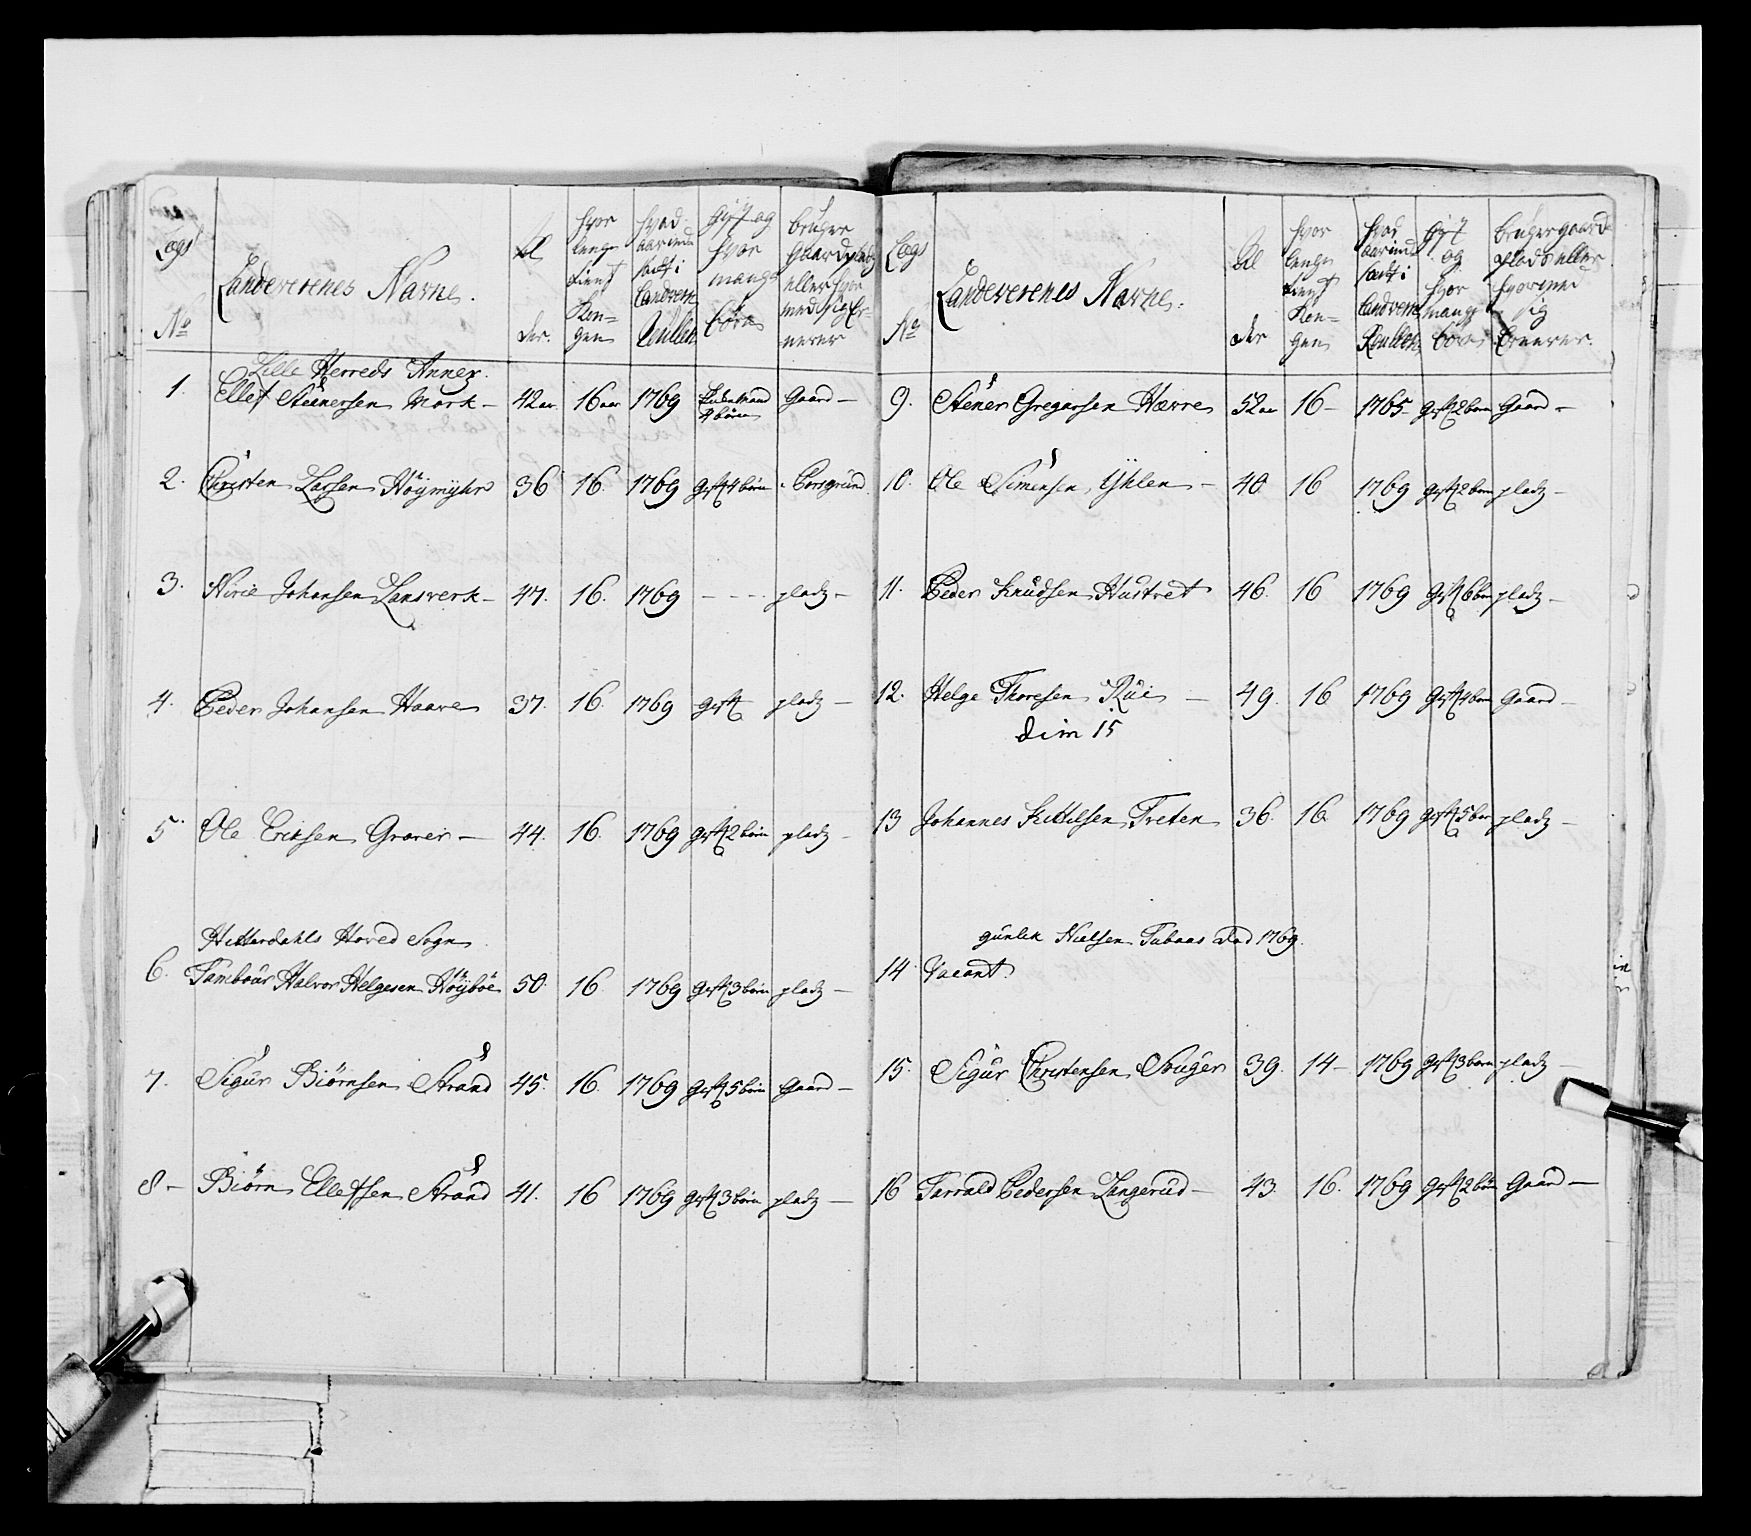 Legs No
Landeverenes Navne.
Al der.
hvor lenge tient Kongen
hvad aar inds sadt i Landvern Rullen
gift og hvor mange börn
bruger gaard plads eller hvor med sig Ernerer
Lille Herreds Annex.
1. Ellef Steenersen Mork - 42 aar 16 aar 1769 4 börn Gaard -
2. Christen Larsen Höymyhr 36 16. 1769 gift 4 börn Porsgrund
3. Nirie Johansen Lansverk - 47. 16. 1769 - - - - pladz -
4. Peder Johansen Haave 37. 16. 1769 gift pladz -
5. Ole Eriksen Graver - 44. 16. 1769 gift 2 börn pladz -
Hitterdahls Hoved Sogn
6. Tambour Halvor Helgesen Höyböe 50. 16. 1769 gift 3 börn pladz -
7. Sigur Biörnsen Strand 45. 16. 1769 gift 5 börn Gaard -
8 - Biörn Ellefsen Strand 41. 16 1769 gift 3 börn pladz -
Legs No
Landeverenes Navne.
Al der
hvor lenge tient Kongen
hvad aar inds sadt i Landvern Rullen
gift og hvor mange börn
bruger gaard plads eller hvormed sig Ernerer.
9. Stener Gregarsen Hævre 52 aar 16 - 1765 - gift 2 born Gaard -
10. Ole Simensen Yhlen - 40 16 1769 gift 2 born pladz -
11. Peder Knudsen Hustvet 46. 16 1769 gift 6 born pladz -
12. Helge Thoresen Rui - 49. 16 1769 gift 4 born Gaard -
dim 15
13 Johannes Kittilsen Treten 36. 16. 1769 gift 5 bor pladz -
gunlek Nielsen Tubaas död 1769.
14 Vacant.
15. Sigur Christensen Souger 39. 14 - 1769 gift 3 born pladz -
16 Tarrald Pedersen Langerud - 43. 16. 1769 gift 2 börn Gaard -